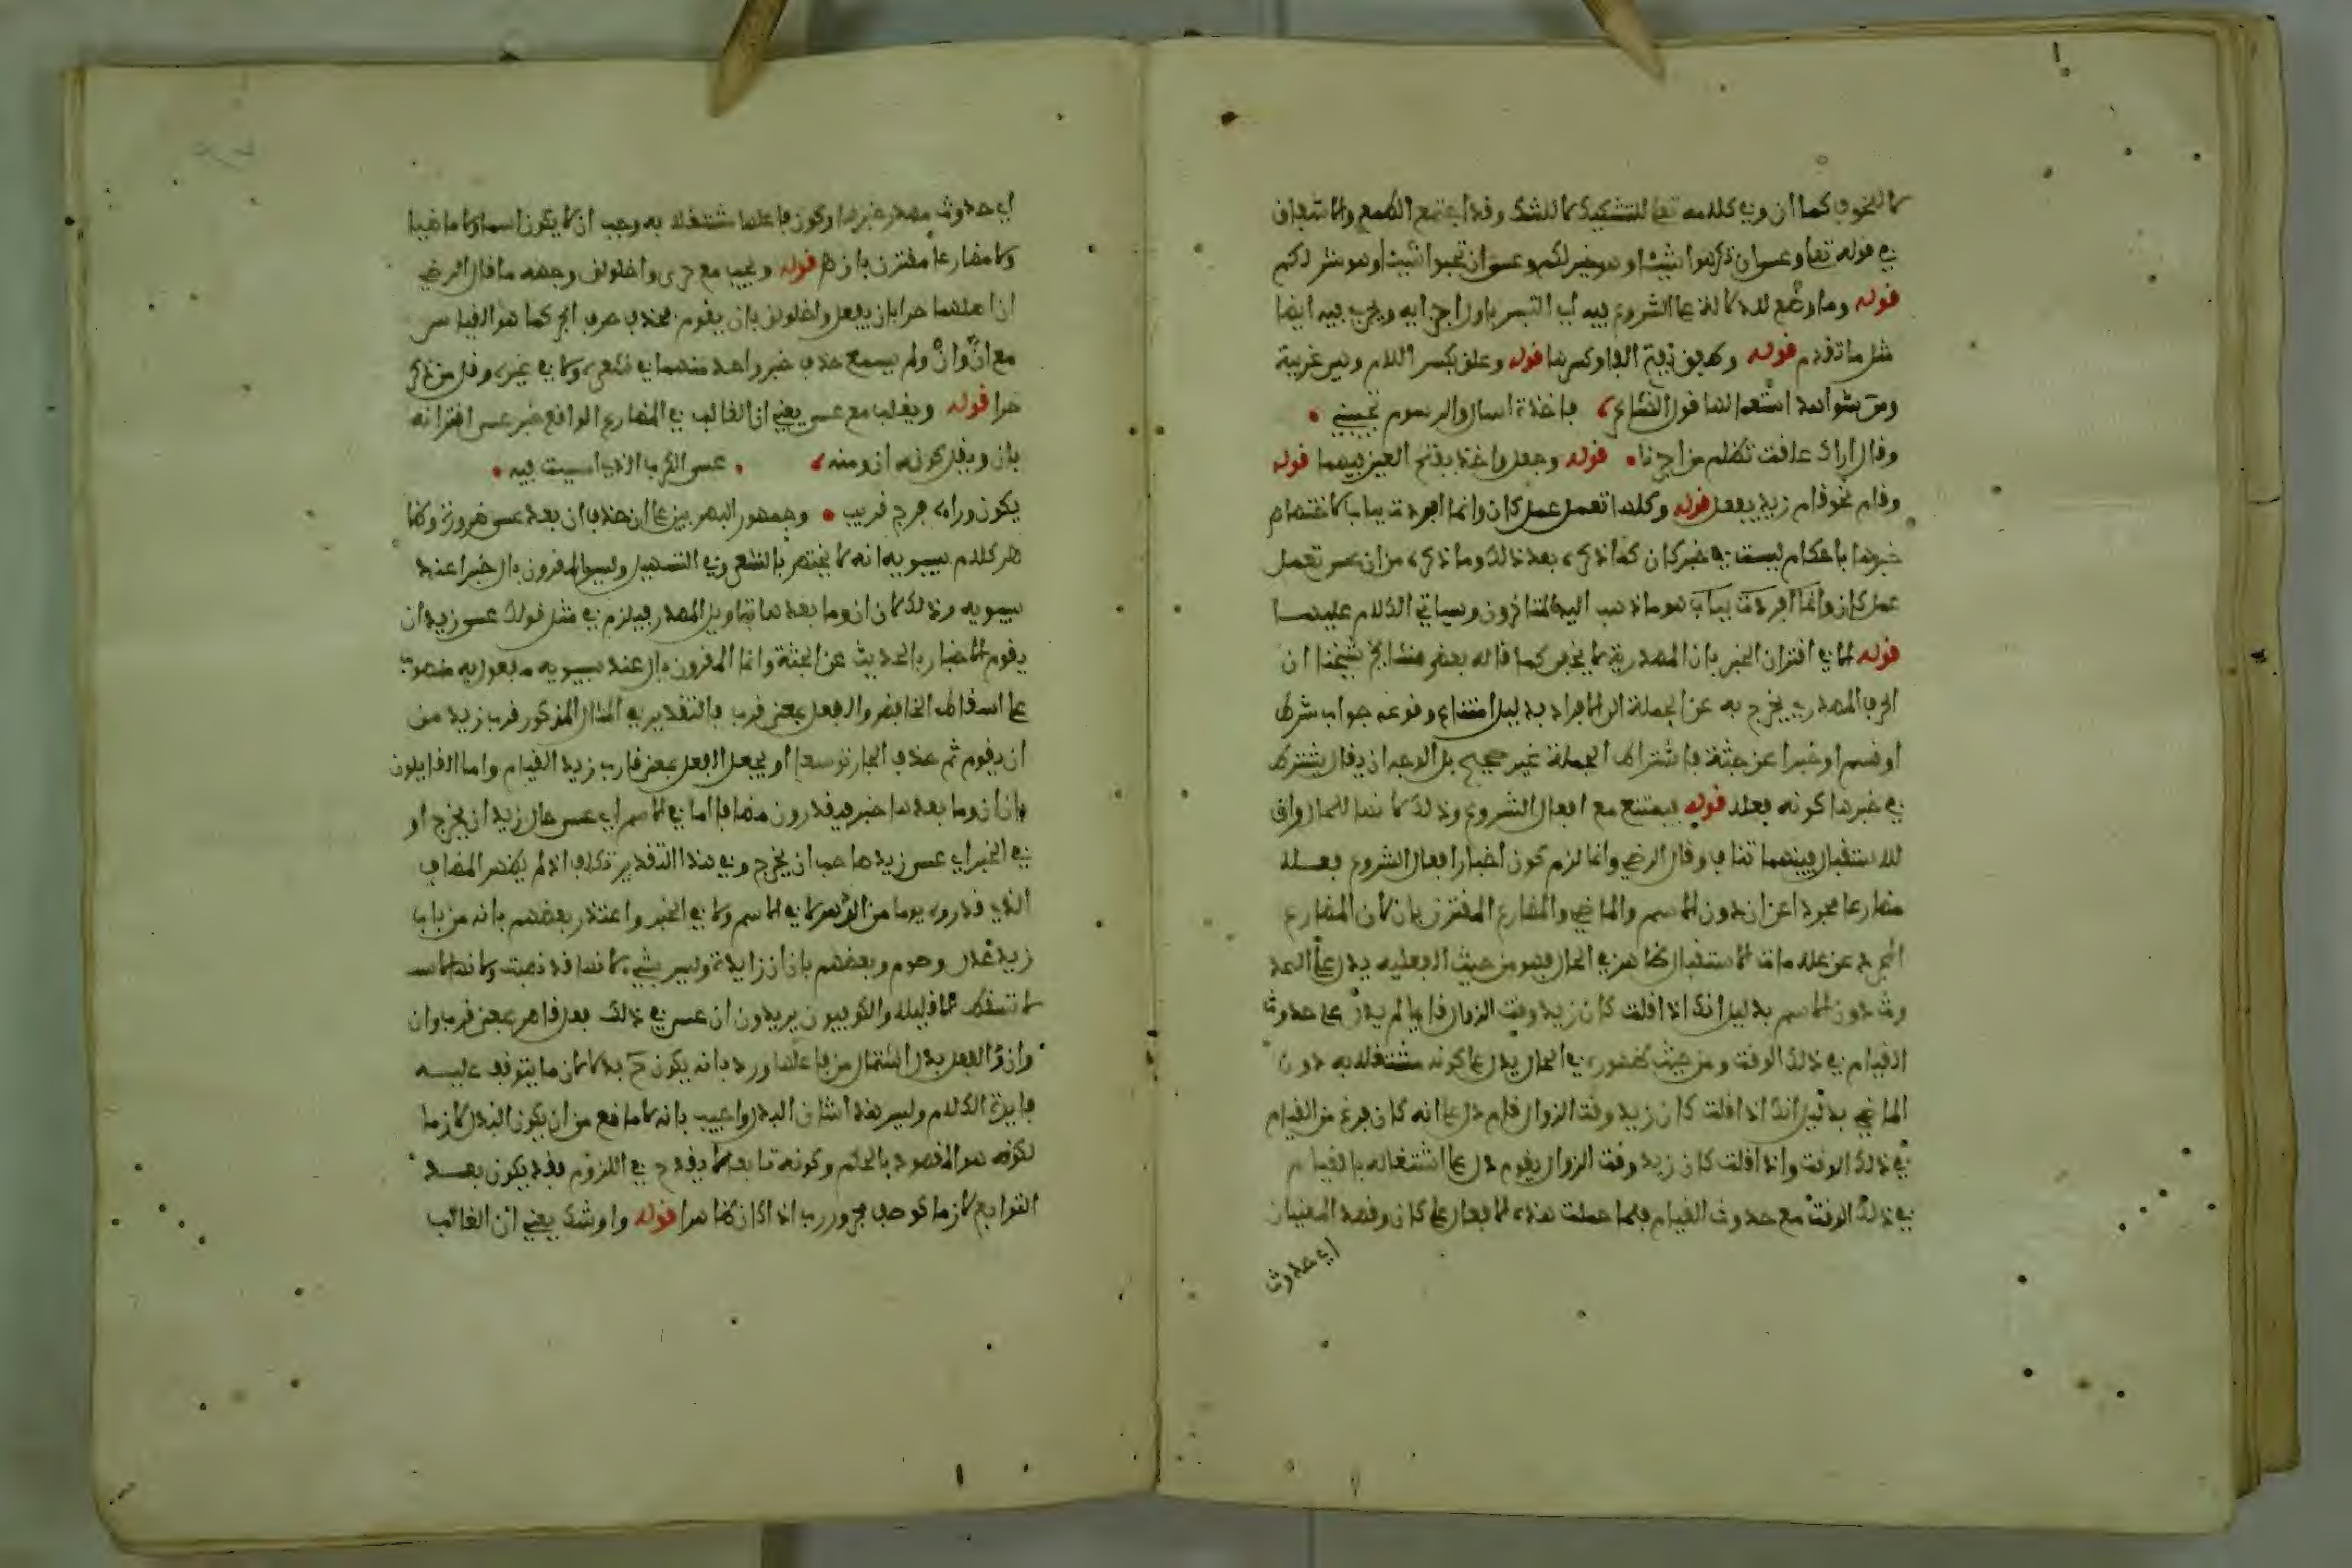 لا للخوف كما ان او في كلامه تعا للتشكيك لا للشك وقد اجتمع الطمع والاشفاق
في قوله تعا وعسى ان تكرهوا شيئا وهو خير لكم وعسى ان تحبوا شيئا وهو شر لكم
قوله وما وضع للدلالة على الشروع فيه اي التلبس باول اجزايه ويجري فيه ايضا
مثل ما تقدم قوله وطفق بفتح الفا وكسرها قوله وعلق بكسر اللام وهي غريبة
ومن شواهد استعمالها قول الشاعر، فاخذت اسال والرسوم تجيبني •
وقال اراك علقت تظلم من اجرنا • قوله وجعل واخذ بفتح العين فيهما قوله
وقام نحو قام زيد يفعل قوله وكلها تعمل عمل كان وانما افردت بباب لاختصاص
خبرها باحكام ليست في خبر كان كما ذكر، بعد ذلك وما ذكر، من ان عسى تعمل
عمل كان وانما افردت بباب هو ما ذهب اليه المتاخرون وسياتي الكلام عليها
قوله الا في اقتران الخبر بان المصدرية لا يخفى كما قاله بعض مشايخ شيخنا ان
الحرف المصدري يخرج به عن الجملة الى الافراد بدليل امتناع وقوعه جواب شرط
او قسم او خبرا عن جثة فاشتراط الجملة غير صحيح بل الوجه ان يقال يشترط
في خبرها كونه فعلا قوله فيمتنع مع افعال الشروع وذلك لانها للحال وان
للاستقبال فبينهما تناف وقال الرضي وانما لزم كون اخبار افعال الشروع فعلا
مضارعا مجردا عن ان دون الاسم والماضي والمضارع المقترن بان لان المضارع
المجرد عن علامات الاستقبال ظاهر في الحال فهو من حيث الفعليه يدل على الحد
وث دون الاسم بدليل انك اذا قلت كان زيد وقت الزوال قايما لم يدل على حدوث
القيام في ذلك الوقت ومن حيث ظهور، في الحال يدل على كونه مشتغلا به دون
الماضي بدليل انك اذا قلت كان زيد وقت الزوال قام دل على انه كان فرغ من القيام
في ذلك الوقت واذا قلت كان زيد وقت الزوال يقوم دل على اشتغاله بالقيام
في ذلك الوقت مع حدوث القيام فلما حملت هذه الافعال على كان وقصد المعنيان
اي حدوث
اي حدوث مصدر خبرها وكون فاعلها مشتغلا به وجب ان لا يكون اسما ولا ماضيا
ولا مضارعا مقترن بان قوله ويجب مع حرى واخلولق وجهه ما قال الرضي
ان اصلهما حرا بان يفعل واخلولق بان يقوم بحذف حرف الجر كما هو القياس
مع انّ وانْ ولم يسمع حذف خبر واحد منهما في شعر، ولا في غير، وقل من ذكر
حرا قوله ويغلب مع عسى يعني ان الغالب في المضارع الواقع خبر عسى اقترانه
بان ويقل كونه ان ومنه، • عسى الكرب الذي امسيت فيه •
يكون وراه فرج قريب • وجمهور البصريين على ان حذف ان بعد عسى ضرورة وظا
هر كلام سيبويه انه لا يختص بالشعر وفي التسهيل وليس المقرون بان خبرا عند
سيبويه وذلك لان ان وما بعدها بتاويل المصدر فيلزم في مثل قولك عسى زيد ان
يقوم الاخبار بالحديث عن الجثة وانما المقرون بان عند سيبويه مفعول به منصوب
على اسقاط الخافض والفعل بمعنى قرب فالتقدير في المثال المذكور قرب زيد من
ان يقوم ثم حذف الجار توسعا او يجعل الفعل بمعنى قارب زيد القيام واما القايلون
بان ان وما بعدها خبر فيقدرون مضافا اما في الاسم اي عسى حال زيد ان يخرج او
في الخبر اي عسى زيد صاحب ان يخرج وفي هذا التقدير تكلف اذ لم يظهر المضاف
الذي قدروه يوما من الدهر لا في الاسم ولا في الخبر واعتذر بعضهم بانه من باب
زيد عدل وصوم وبعضهم بان ان زايدة وليس بشي لانها قد نصبت ولانها
لا تسقط الا قليلا والكوفيون يريدون ان عسى في ذلك فعل قاصر بمعنى قرب وان
وان والفعل بدل اشتمال من فاعلها ورد بانه يكون ح بدلا لازما يتوقف عليه
فايدة الكلام وليس هذا شان البدل واجيب بانه لا مانع من ان يكون البدل لازما
لكونه هو المقصود بالحكم وكونه تابعا لا يقدح في اللزوم فقد يكون بعض
التوابع لازما كوصف مجرور رب اذا كان ظاهرا قوله واوشك يعني ان الغالب